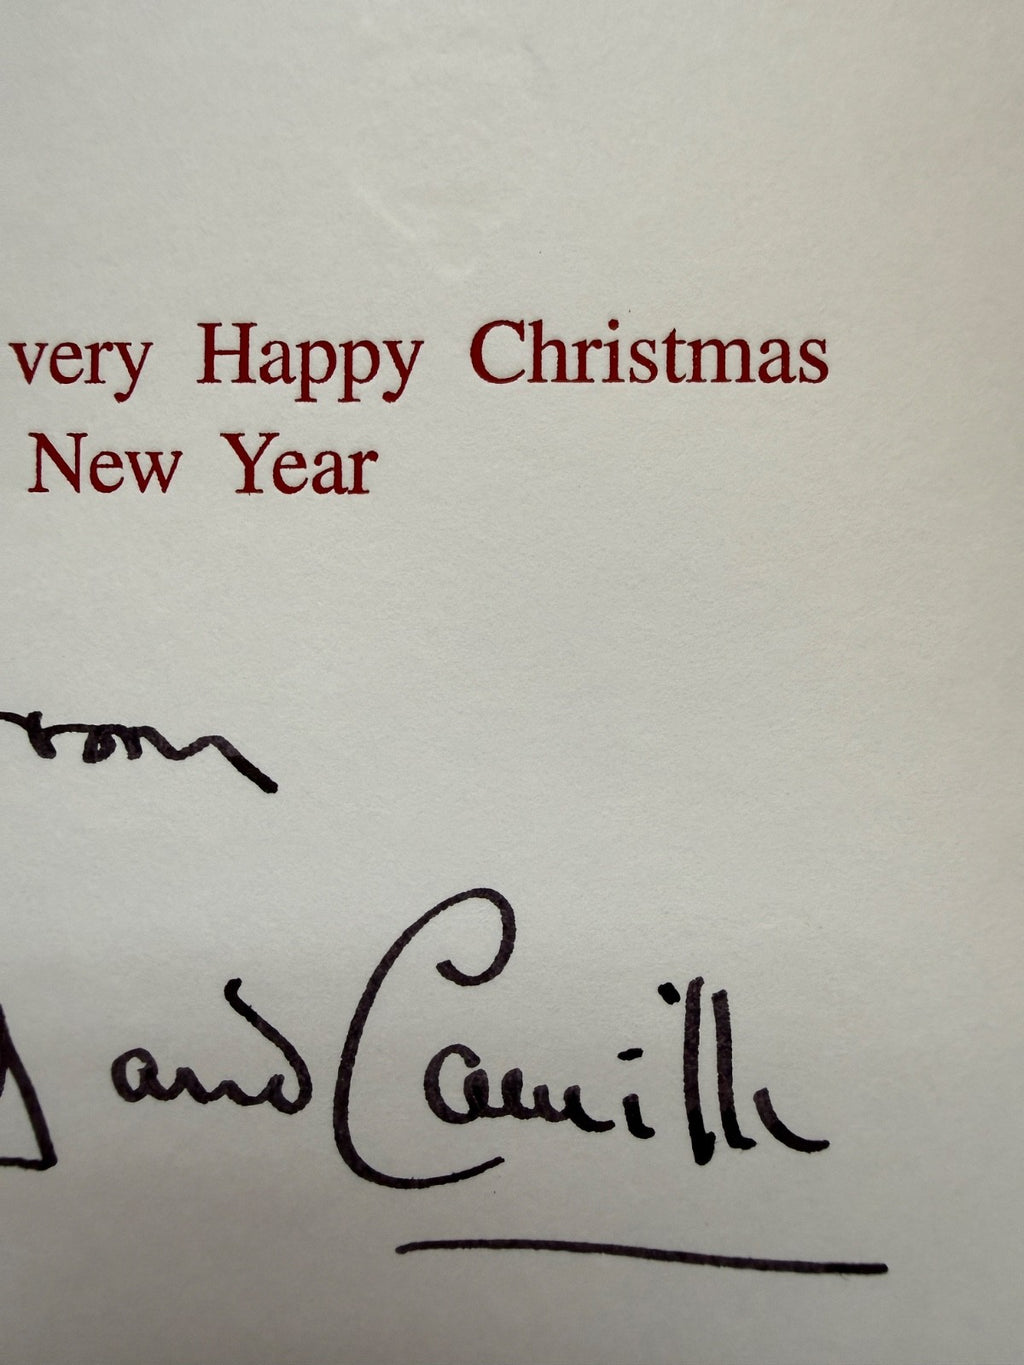 very Happy Christmas
New Year
from
and Camilla